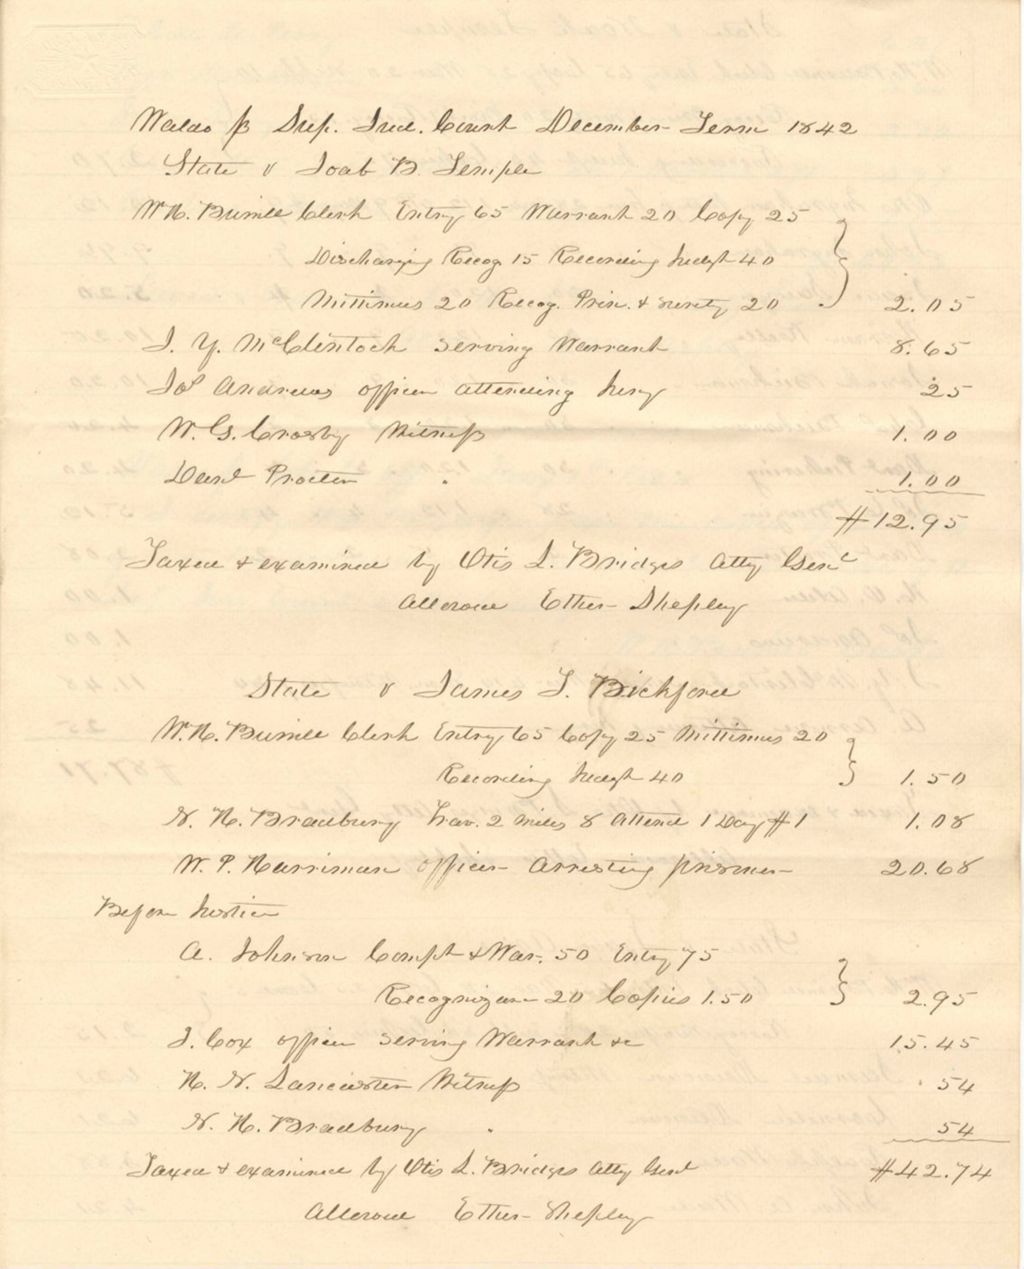 Waldo ss Sup. Jud. Court December Term 1842
State v Joab B. Temple
W. H. Burrill Clerk Entry 65 Warrant 20 Copy 25
Discharging Recog 15 Recording Judgt 40
Mittimus 20 Recog. Prin. & surety 20 2.05
J. Y. McClintock serving Warrant 8.65
Jos Andrews officer attending Jury 25
W. G. Crosby Witness 1.00
Danl Procter " 1.00
$12.95
Taxed & examined by Otis L. Bridges Atty Genl
Allowed Ether Shepley
State v James T. Bickford
W. H. Burrill Clerk Entry 65 Copy 25 Mittimus 20
Recording Judgt 40 1.50
N. H. Bradbury Trav. 2 miles 8 Attend 1 Day $1 1.08
W. P. Harriman officer arresting prisoner 20.68
Before Justice
A. Johnson Compt & War. 50 Entry 75
Recognizance 20 Copies 1.50 2.95
J. Cox officer serving Warrant &c 15.45
H. N. Lancaster Witness 54
N. H. Bradbury " 54
Taxed & examined by Otis L. Bridges Atty Genl $42.74
Allowed Ether Shepley